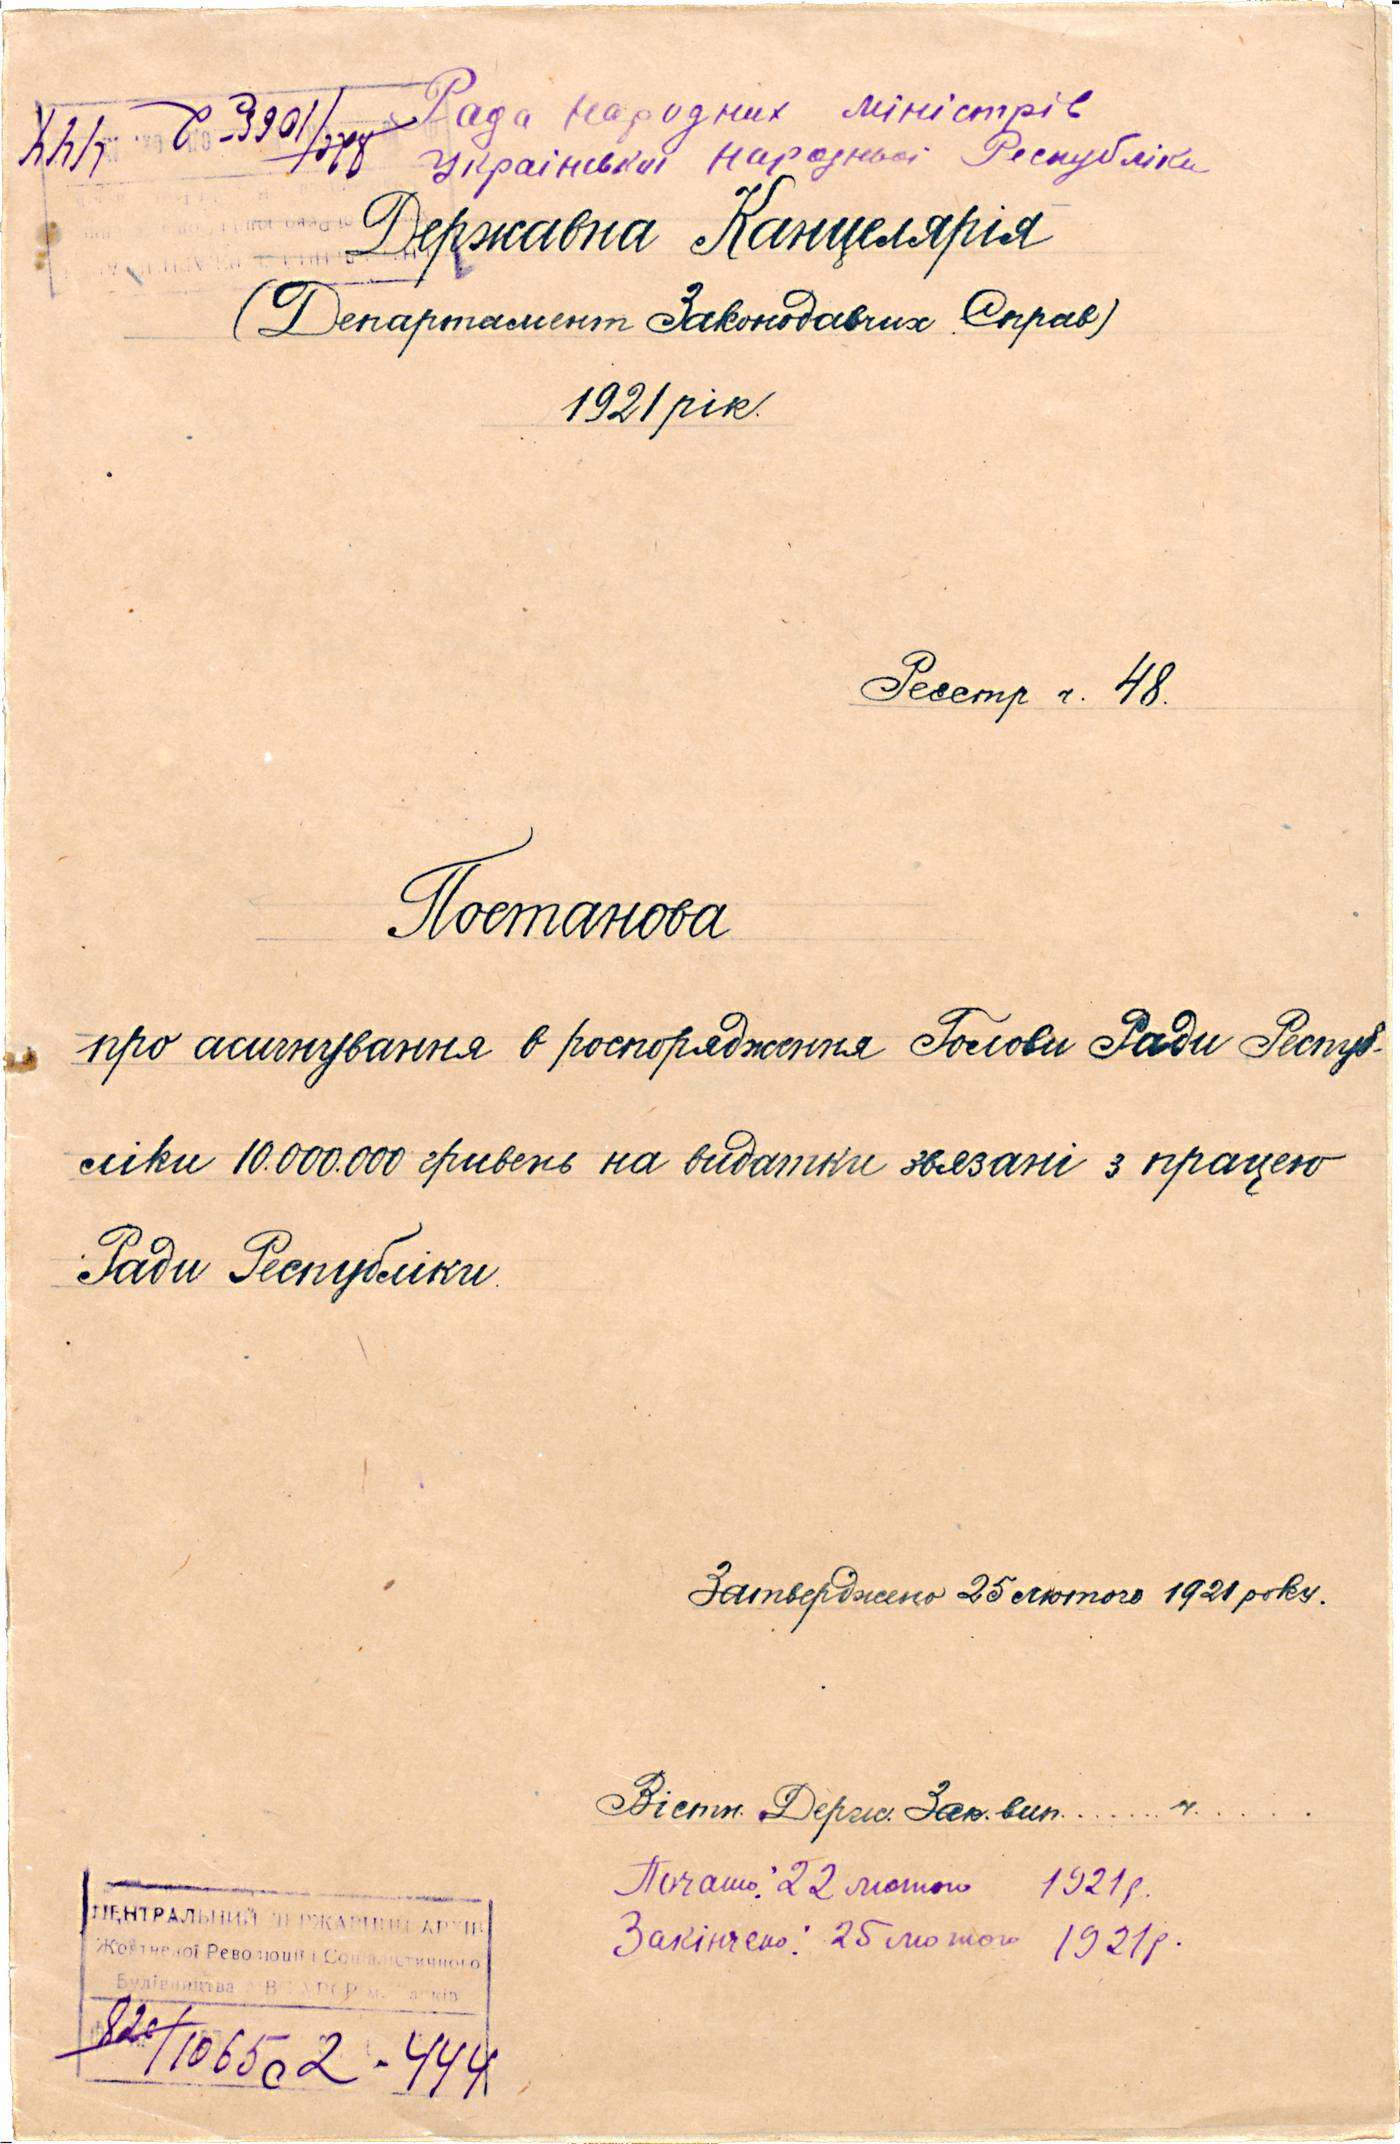 Рада народних міністрів
Української народньої Республіки
Державна Канцелярія
(Департамент Законодавчих Справ)
1921 рік.
Реєстр ч. 48.
Постанова
про асигнування в роспорядження Голови Ради Респуб-
ліки 10.000.000 гривень на видатки звязані з працею
Ради Республіки.
Затверджено 25 лютого 1921 року.
Вістн. Держ. Зак. вип. ...... ч. .....
Почато: 22 лютого 1921 р.
Закінчено: 25 лютого 1921 р.
ЦЕНТРАЛЬНИЙ ДЕРЖАВНИЙ АРХІВ
Жовтневої Революції і Соціалістичного
Будівництва
1065 о 2 - 444